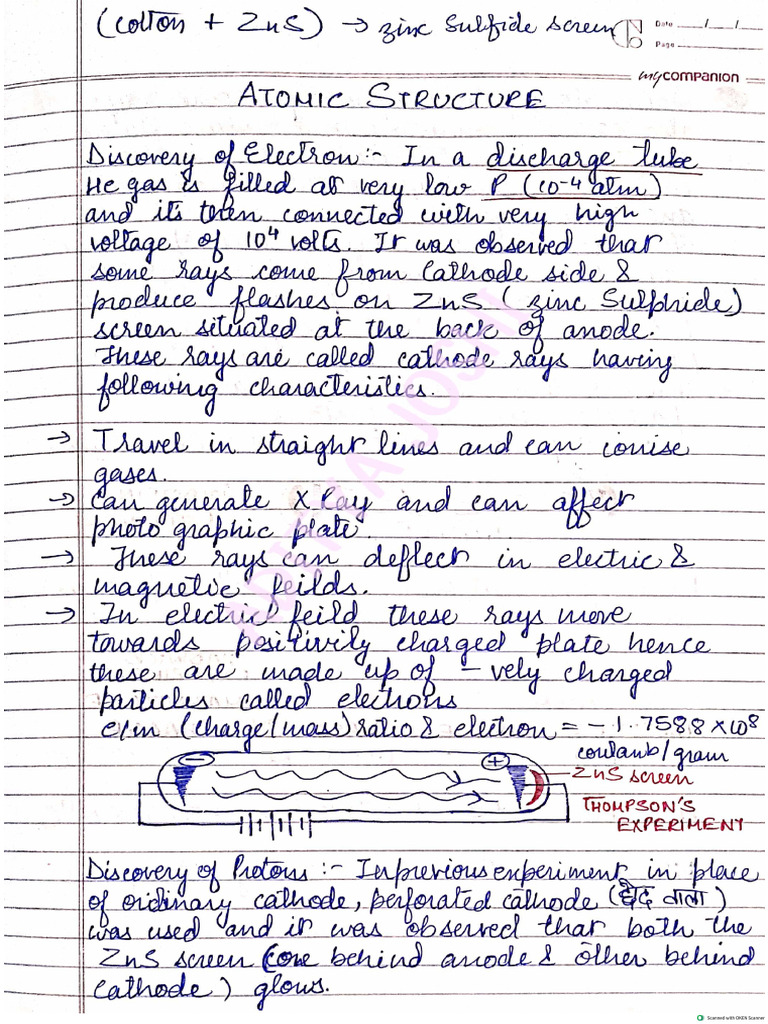 (cotton + ZnS) → zinc sulfide screen
Date ___/___/___
Page ___
mycompanion
ATOMIC STRUCTURE
Discovery of Electron:- In a discharge tube
He gas is filled at very low P (10⁻⁴ atm)
and its then connected with very high
voltage of 10⁴ volts. It was observed that
some rays come from cathode side &
produce flashes on ZnS (zinc Sulphide)
screen situated at the back of anode.
These rays are called cathode rays having
following characteristics.
→ Travel in straight lines and can ionise
gases.
→ Can generate X Ray and can affect
photographic plate.
→ These rays can deflect in electric &
magnetic feilds.
→ In electric feild these rays move
towards positively charged plate hence
these are made up of - vely charged
particles called electrons
e/m (charge/mass) ratio & electron = -1.7588 × 10⁸
coulamb/gram
− +
ZnS screen
THOMPSON'S
EXPERIMENT
Discovery of Protons :- In previous experiment in place
of ordinary cathode, perforated cathode (छेद वाला)
was used and it was observed that both the
ZnS screen (one behind anode & other behind
cathode) glows.
Scanned with OKEN Scanner